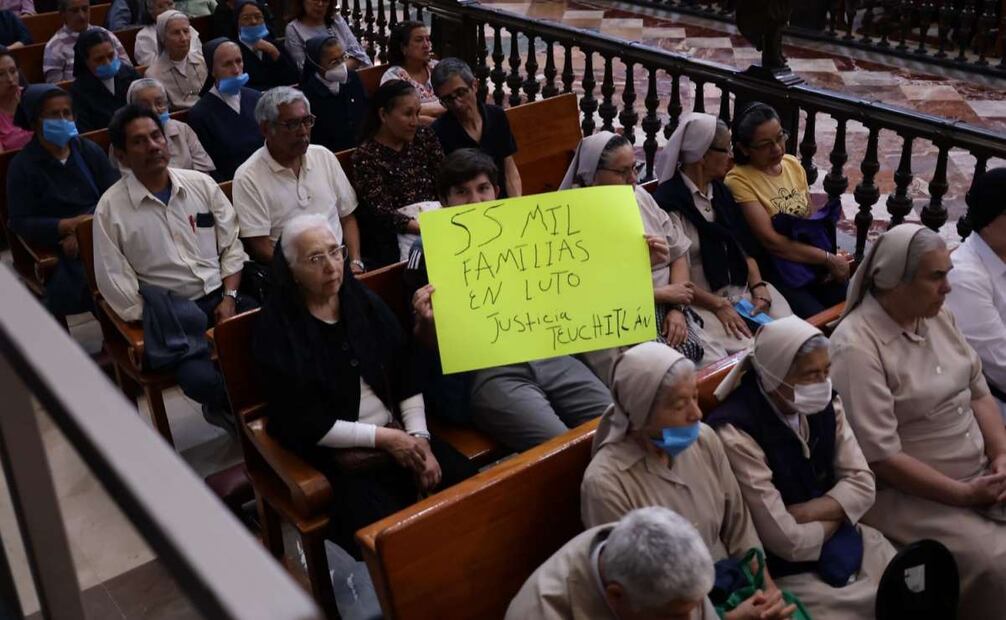 55 MIL
FAMILIAS
EN LUTO
JUSTICIA
TEUCHITLÁN